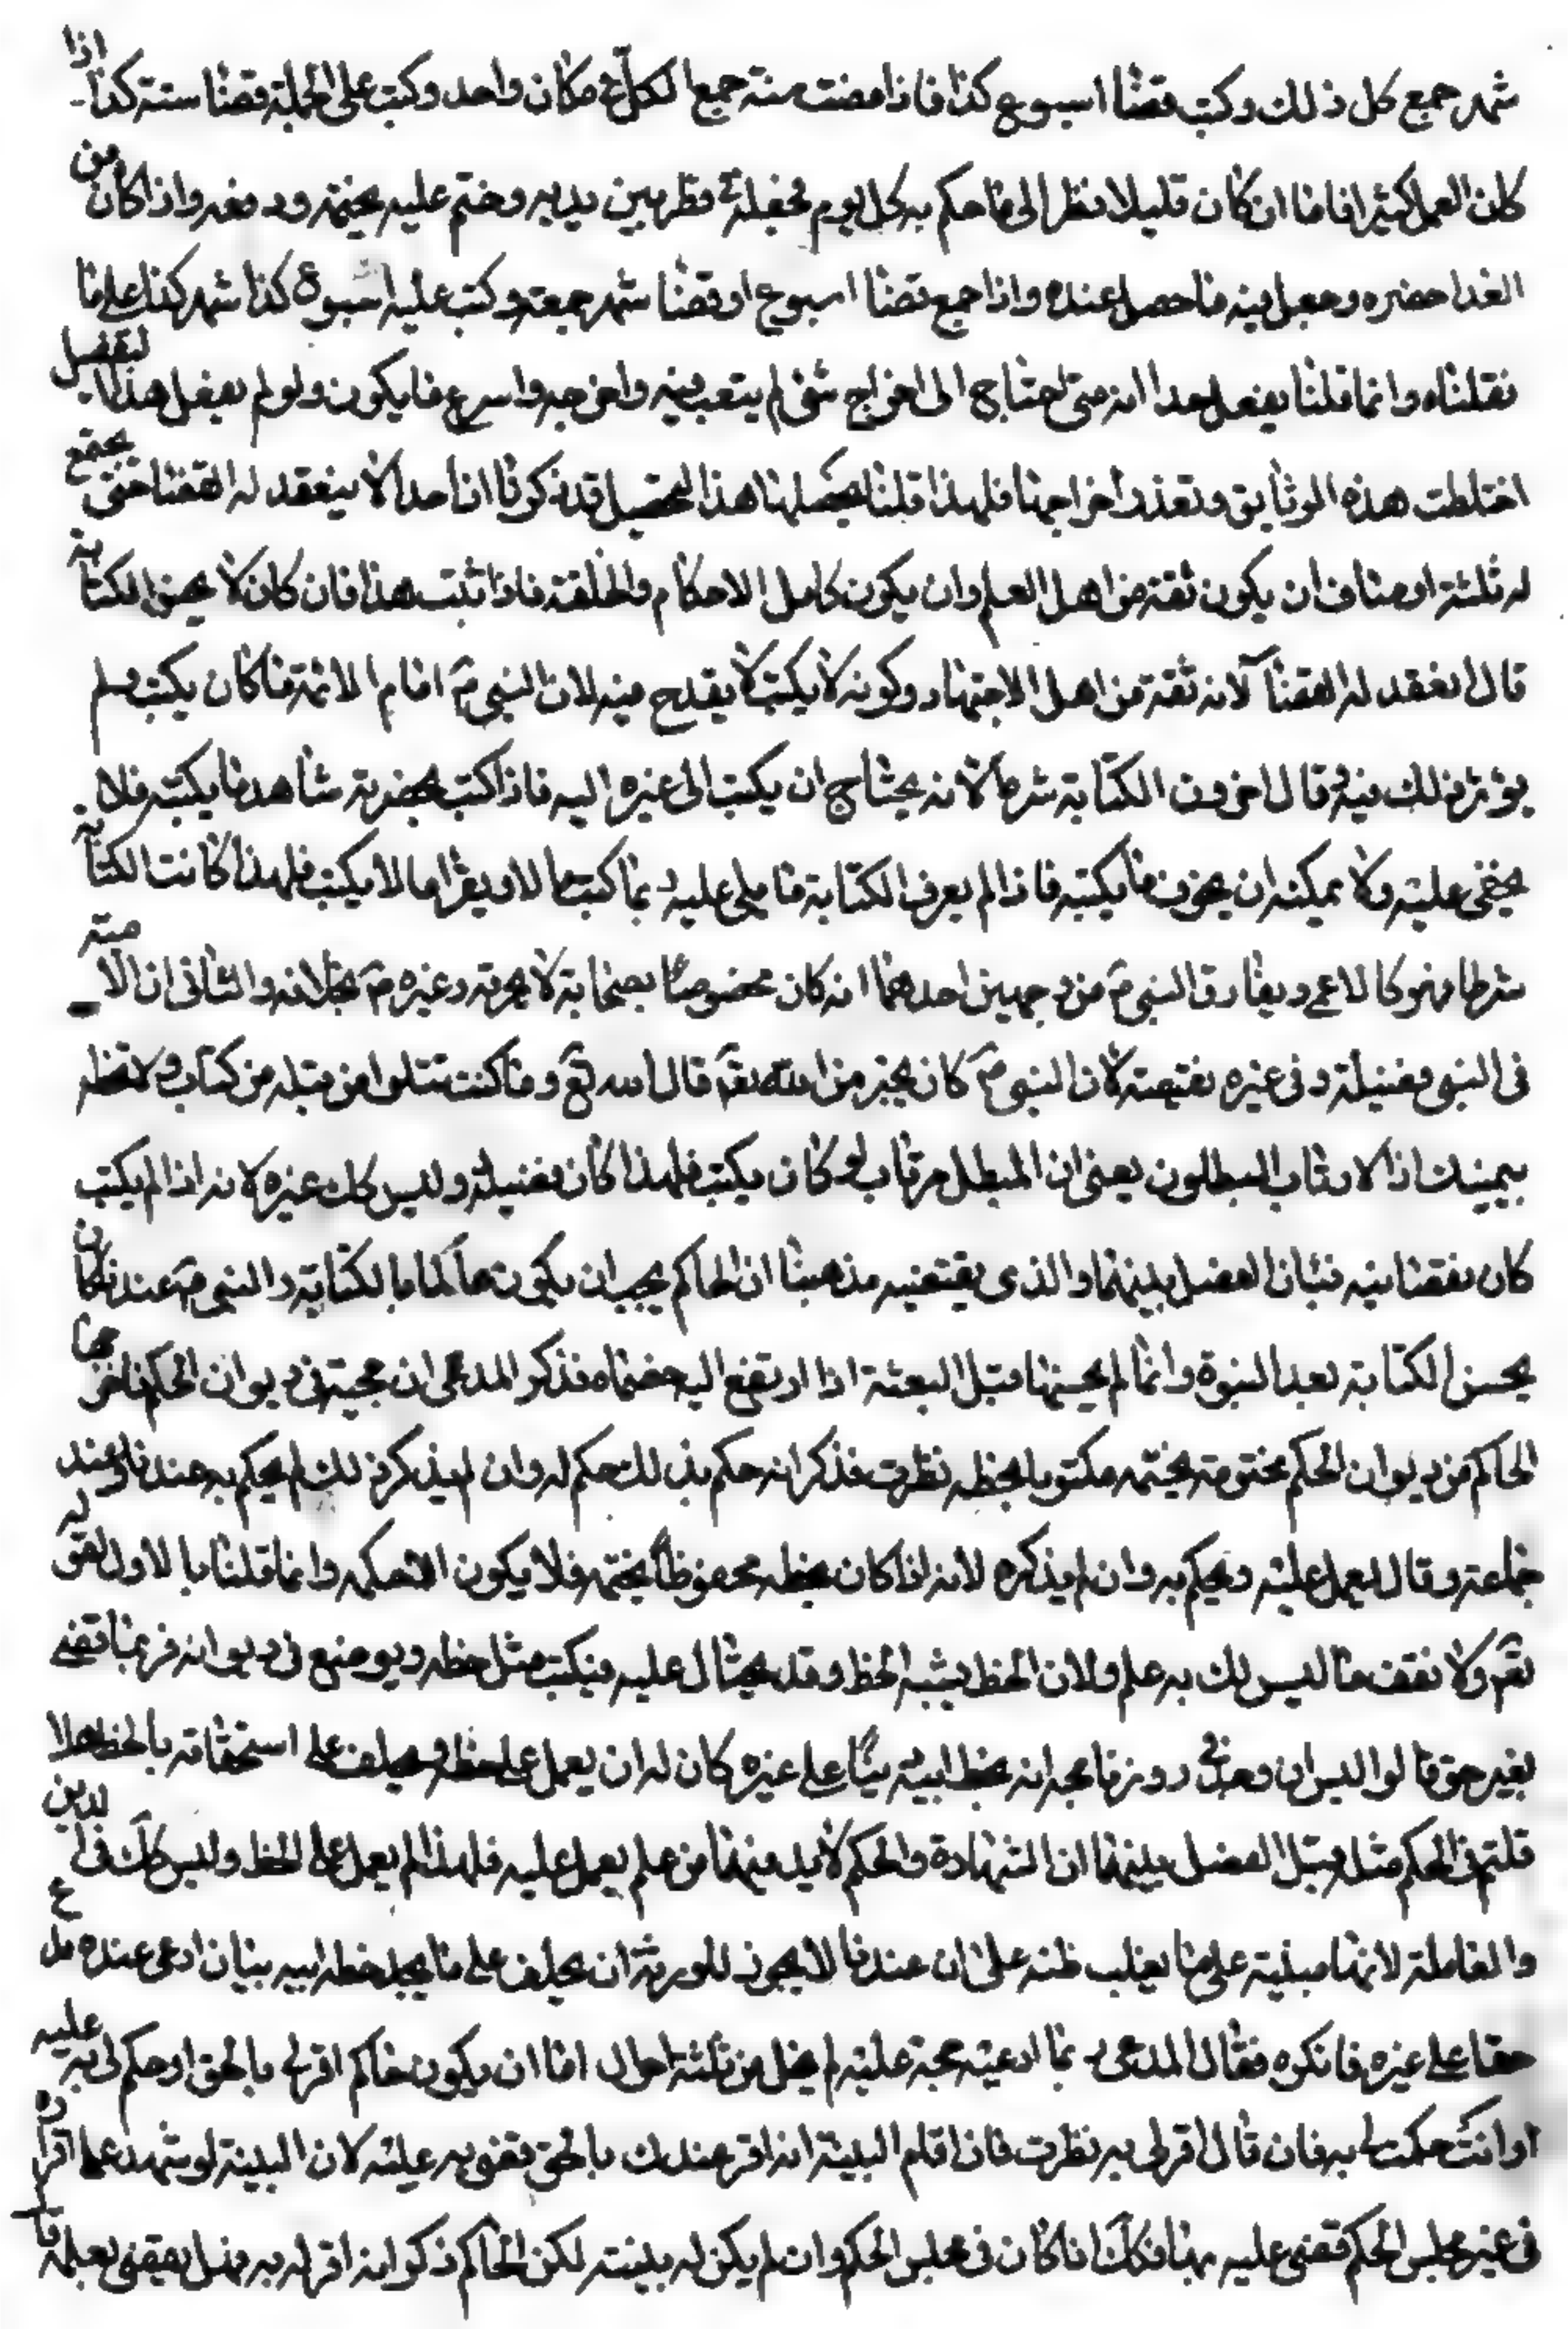 شهر جمع كل ذلك وكتب قضاا اسبوع كذا فاذا مضت سنة جمع الكل في مكان واحد وكتب على الجملة قضاا سنة كذا اذا
كان العمل كثيرا فاما ان كان قليلا نظر الى ما حكم به كل يوم فجعله في قمطر بين يديه وختم عليه بختمه ورفعه واذا كان من
الغد احضره وجعل فيه ما حصل عنده واذا جمع قضاا اسبوع او قضاا شهر جمعه وكتب عليه اسبوع كذا شهر كذا على ما
نقلناه وانما قلنا يفعل هذا انه متى احتاج الى اخراج شئ لم يتعب فيه واخرجه واسرع ما يكون ولو لم يفعل هذا التفصيل
اختلطت هذه الوثايق وتعذر اخراجها فلهذا قلنا يحصلها هذا التحصيل قد ذكرنا ان احدا لا ينعقد له القضاا حتى يجتمع
له ثلثة اوصاف ان يكون ثقة من اهل العلم وان يكون كامل الاحكام والخلقة فاذا ثبت هذا فان كان لا يحسن الكتابة
قال انعقد له القضاآ لانه ثقة من اهل الاجتهاد وكونه لا يكتب لا يقدح فيه لان النبي ص امام الائمة ما كان يكتب ولم
يؤثر ذلك فيه وقال اخرون الكتابة شرط لانه يحتاج ان يكتب الى غيره اليه فاذا كتب بحضرته شاهد ما يكتبه فلا
يخفى عليه ولا يمكنه ان يحرف ما يكتبه فاذا لم يعرف الكتابة فما يلى عليه ربما كتب ما لا ويقرا ما لا يكتب فلهذا كانت الكتابة
شرطا وهو كالاعمى ويفارق النبي ص من وجهين احدهما انه كان مخصوصا بصحابة لا يخونه وغيره ص بخلافه والثاني ان الامية
في النبي فضيلة وفي غيره نقيصة لان النبي ص كان يخبر من الله تعم قال الله تع وما كنت تتلوا من قبله من كتاب ولا تخطه
بيمينك اذا لارتاب المبطلون يعني ان المبطل مرتاب لو كان يكتب فلهذا كان فضيلة وليس كك غيره لانه اذا لم يكتب
كان نقصا فيه فبان الفصل بينهما والذي يقتضيه مذهبنا ان الحاكم يجب ان يكون عالما بالكتابة والنبي ص عندنا كان
يحسن الكتابة بعد النبوة وانما لم يحسنها قبل البعثة اذا ارتفع اليه خصماه فذكر المدعى ان حجته في ديوان الحكم فاخرجها
الحاكم من ديوان الحكم مختومة بختمه مكتوبا بخطه نظرت فذكر انه حكم بذلك حكم له وان لم يذكر ذلك لم يحكم به عندنا وعند
جماعة وقال يعمل عليه ويحكم به وان لم يذكره لانه اذا كان بخطه محفوظا بختمه فلا يكون الا حكمه وانما قلنا بالاول لقوله
تعم ولا تقف ما ليس لك به علم ولان الخط يشبه الخط وقد يحتال عليه فيكتب مثل خطه ويوضع في ديوانه فربما قضى
بغير حق قالوا اليس ان وجد في روزنامجه انه بخط ابيه شيئا على غيره كان له ان يعمل على خطه ويحلف على استحقاقه بالخط هلا
قلتم في الحكم مثله قيل الفصل بينهما ان الشهادة والحكم لا بد فيهما من علم يعمل عليه فلهذا لم يعمل على الخط وليس كك في الدين
والمعاملة لانها مبنية على ما يغلب ظنه على ان عندنا لا يجوز للورثة ان يحلف على ما يجد خط ابيه بيان ادعى عنده مدع
حقا على غيره فانكره فقال المدعى بما ادعيته حجة عليه لم يخل من ثلثة احوال اما ان يكون حاكم اقر لي بالحق او حكم لي به عليه
او انك حكمت لي به فان قال اقر لي به نظرت فان اقام البينة انه اقر عندك بالحق قضى به عليه لان البينة لو شهد على اقراره
في غير مجلس الحكم قضى عليه بها فكك اذا كان في مجلس الحكم وان لم يكن له بينة لكن الحاكم ذكر انه اقر له به فهل يقضى بعلمه قا